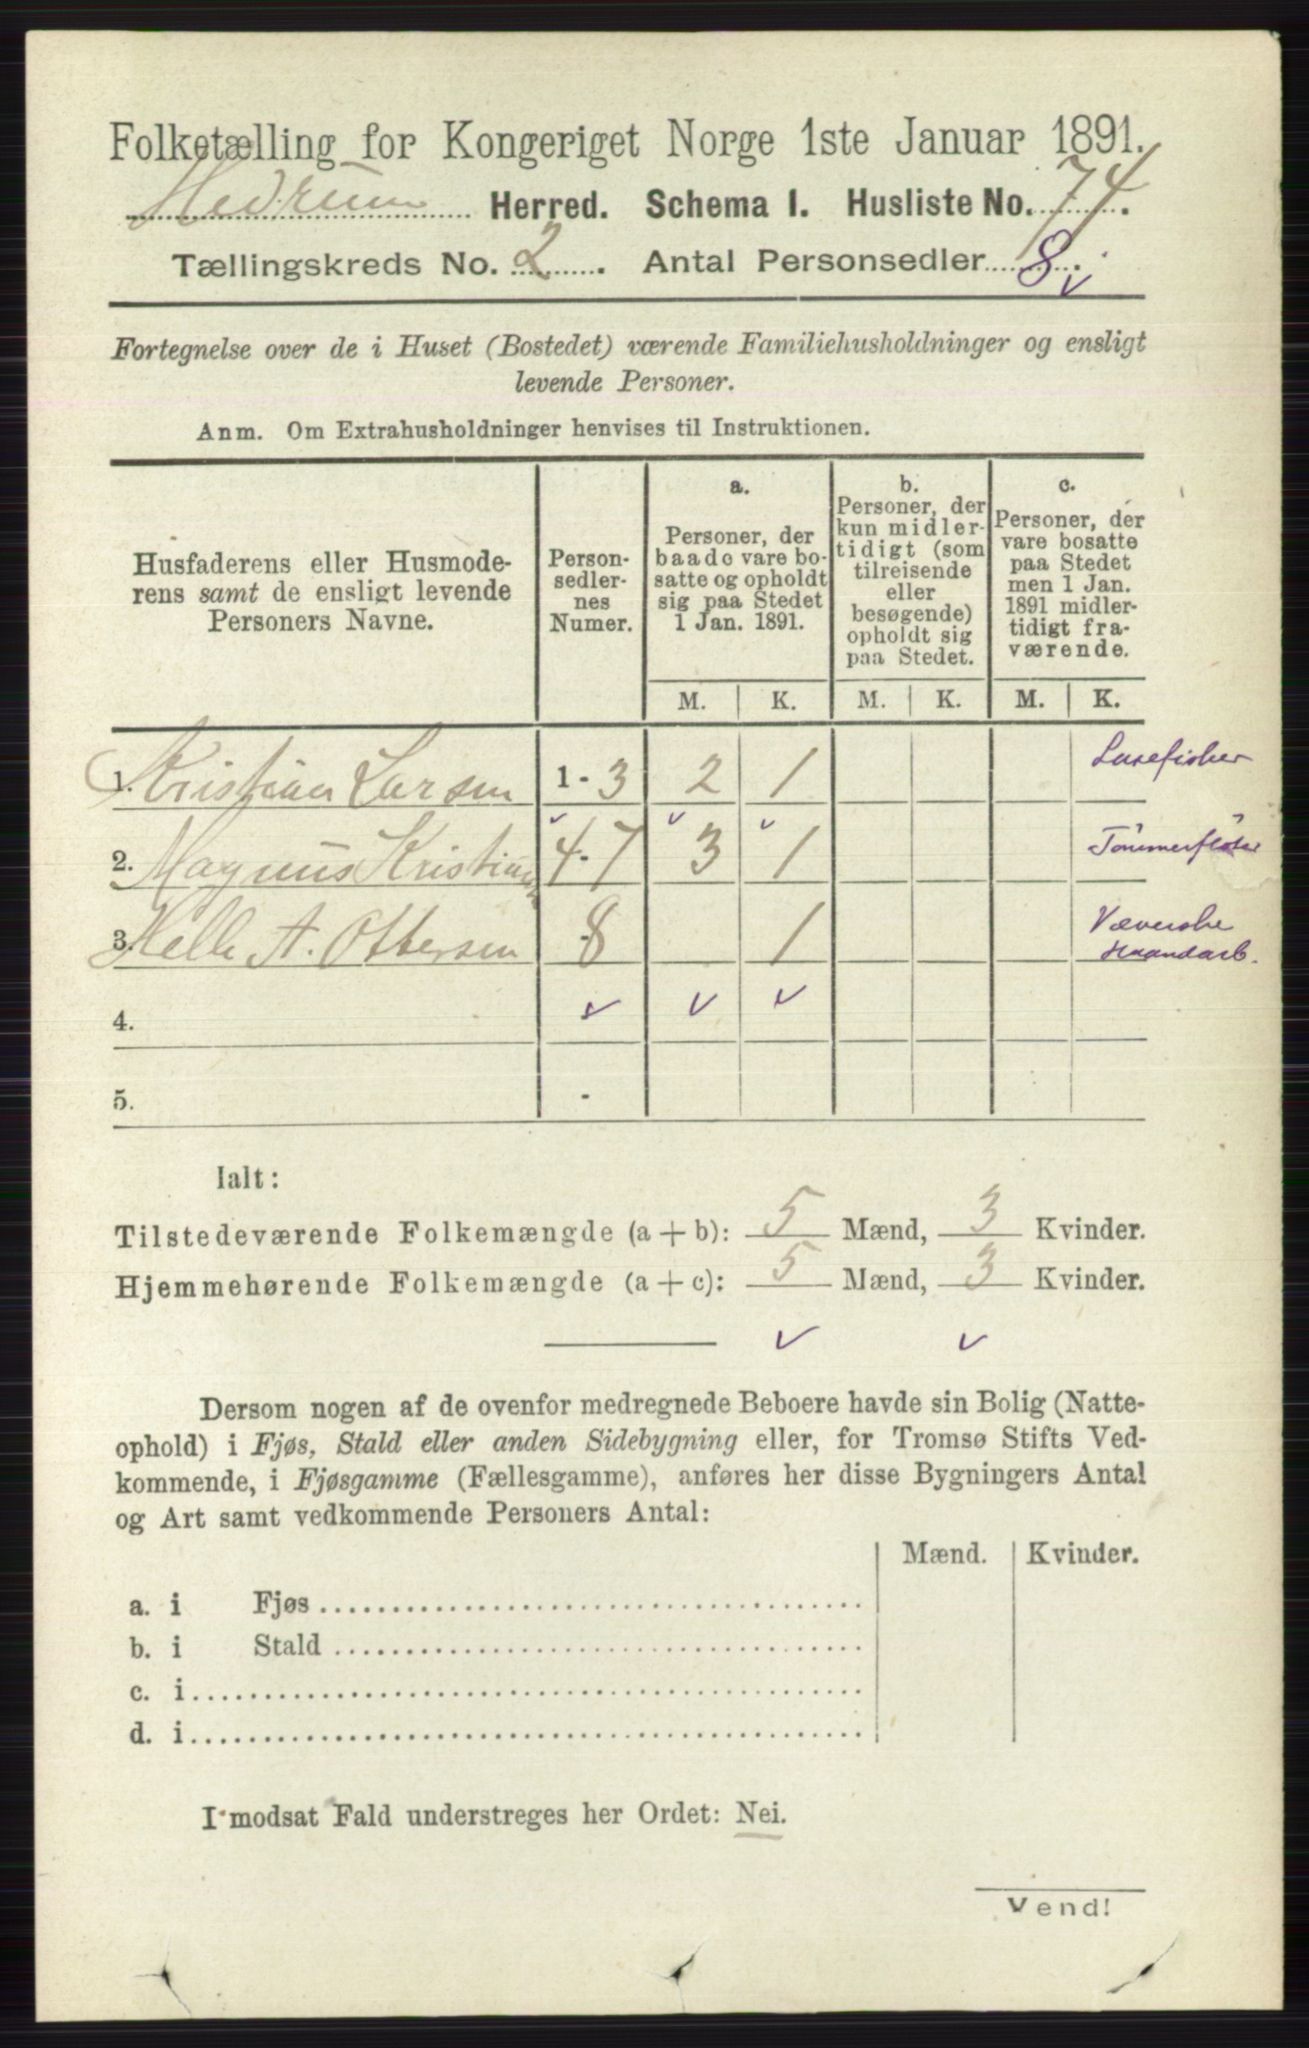 Folketælling for Kongeriget Norge 1ste Januar 1891.
Hedrum Herred. Schema I. Husliste No. 74.
Tællingskreds No. 2. Antal Personsedler 8.
Fortegnelse over de i Huset (Bostedet) værende Familiehusholdninger og ensligt
levende Personer.
Anm. Om Extrahusholdninger henvises til Instruktionen.
Husfaderens eller Husmode-
rens samt de ensligt levende
Personers Navne.
Person-
sedler-
nes
Numer.
a.
Personer, der
baade vare bo-
satte og opholdt
sig paa Stedet
1 Jan. 1891.
b.
Personer, der
kun midler-
tidigt (som
tilreisende
eller
besøgende)
opholdt sig
paa Stedet.
c.
Personer, der
vare bosatte
paa Stedet
men 1 Jan.
1891 midler-
tidigt fra-
værende.
M. K. M. K. M. K.
1. Kristian Larsen 1-3 2 1 Laxefisker
2. Magnus Kristian 4-7 3 1 Tømmerfløter
3. Helle A. Ottersen 8 1 Væverske
Haandarb.
4.
5. -
Ialt:
Tilstedeværende Folkemængde (a + b): 5 Mænd, 3 Kvinder.
Hjemmehørende Folkemængde (a + c): 5 Mænd, 3 Kvinder.
Dersom nogen af de ovenfor medregnede Beboere havde sin Bolig (Natte-
ophold) i Fjøs, Stald eller anden Sidebygning eller, for Tromsø Stifts Ved-
kommende, i Fjøsgamme (Fællesgamme), anføres her disse Bygningers Antal
og Art samt vedkommende Personers Antal:
Mænd. Kvinder.
a. i Fjøs
b. i Stald
c. i
d. i
I modsat Fald understreges her Ordet: Nei.
Vend!